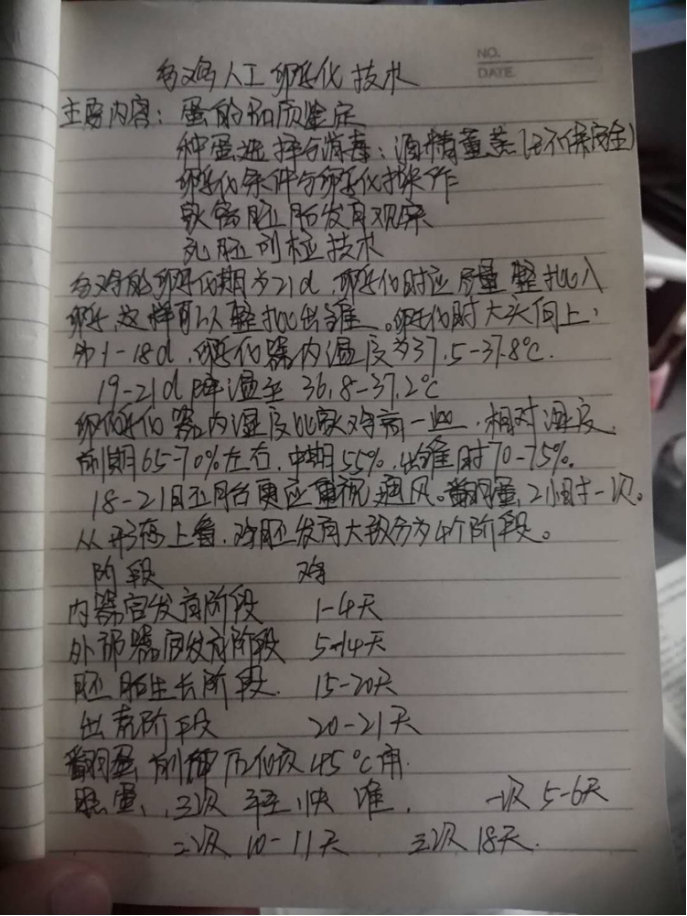 NO.
DATE.
乌鸡人工孵化技术
主要内容：蛋的品质鉴定
种蛋选择与消毒：酒精熏蒸(不保安全)
孵化条件与孵化操作
家禽胚胎发育观察
死胚剖检技术
乌鸡的孵化期为21d，孵化时应尽量整批入
孵，这样可以整批出雏。孵化时大头向上，
第1-18d，孵化器内温度为37.5-37.8℃.
19-21d降温至 36.8-37.2℃
孵化器内湿度比家鸡高一些，相对湿度
前期65-70%左右，中期55%，出雏时70-75%。
18-21日胚胎更应重视通风。翻蛋，2小时一次。
从形态上看，鸡胚发育大致分为4个阶段。
阶段 鸡
内器官发育阶段 1-4天
外部器官发育阶段 5-14天
胚胎生长阶段. 15-20天
出壳阶段 20-21天
翻蛋 前俯后仰及45℃角.
照蛋，三次 轻、快 准， 一次 5-6天
二次 10-11天 三次 18天.